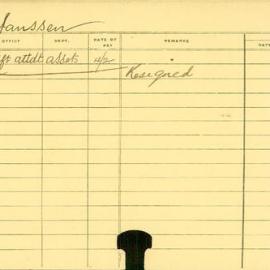 Janssen
OFFICE DEPT. RATE OF PAY REMARKS DATE
attdt assets 4/2
Resigned